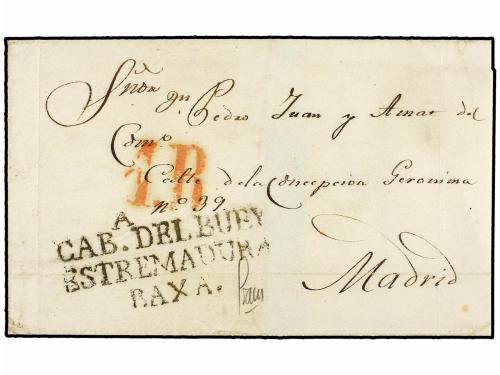 Sñor Dn Pedro Juan y Amat del
Comº
Calle de la Concepcion Geronima
nº 39
Madrid
A
CAB. DEL BUEY
ESTREMADURA
BAXA.